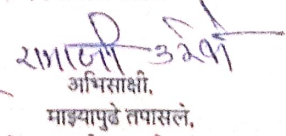 रामाजी
अभिसाक्षी.
माझ्यापुढे तपासलं.